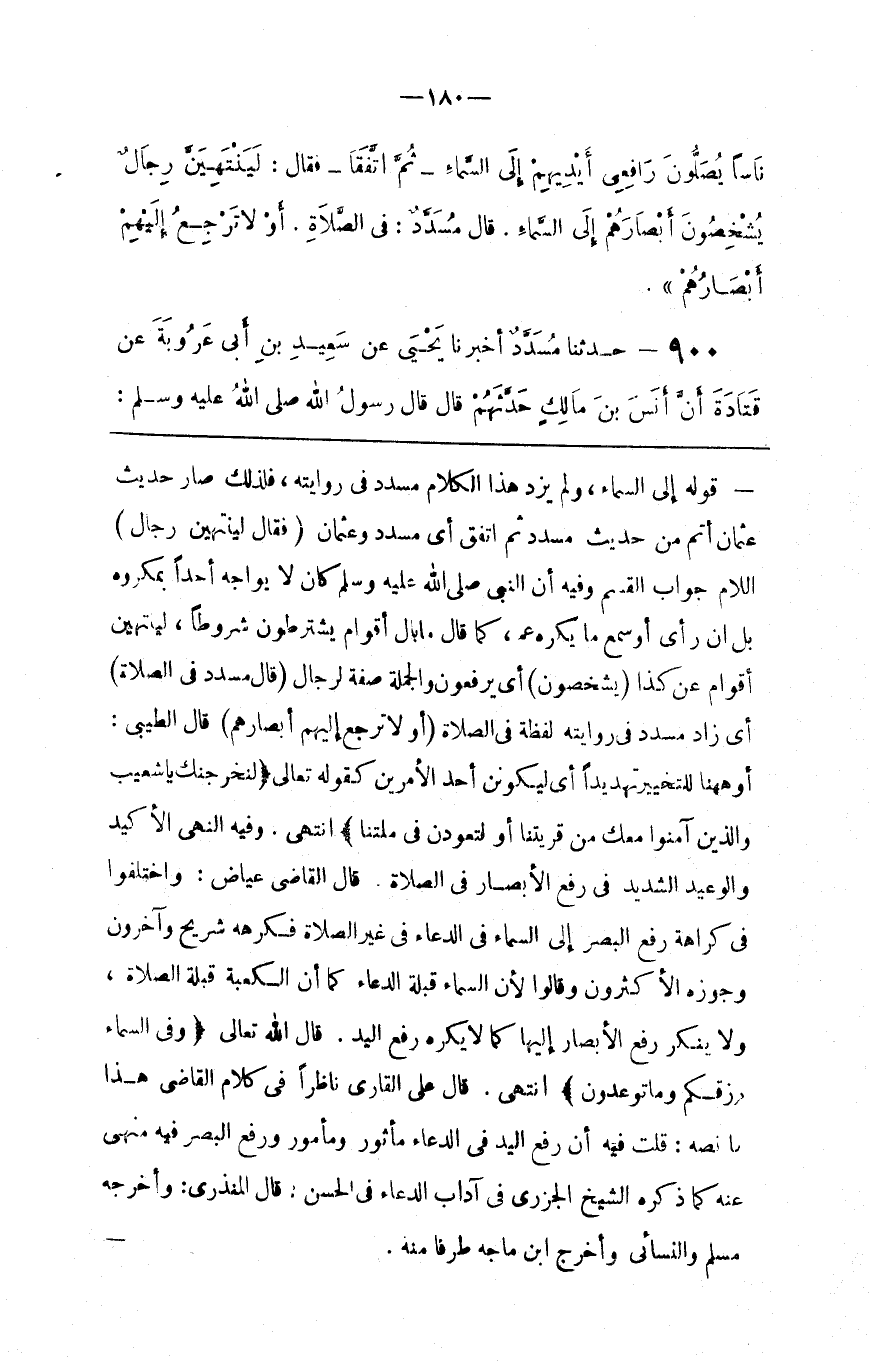 —١٨٠—
نَاساً يُصَلُّونَ رَافِعِى أَيْدِيهِمْ إِلَى السَّمَاءِ ـ ثُمَّ اتَّفَقَا ـ فقال : لَيَنْتَهِيَنَّ رِجَالٌ
يُشْخِصُونَ أَبْصَارَهُمْ إِلَى السَّمَاءِ . قال مُسَدَّدٌ : فى الصَّلَاةِ . أَوْ لاتَرْجِعُ إِلَيْهِمْ
أَبْصَارُهُمْ » .
٩٠٠ — حدثنا مُسَدَّدٌ أخبرنا يَحْيَى عن سَعِيدِ بنِ أَبى عَرُوبَةَ عن
قَتَادَةَ أَنَّ أَنَسَ بنَ مَالِكٍ حَدَّثَهُمْ قال قال رسولُ الله صلى اللهُ عليه وسلم :
— قوله إلى السماء ، ولم يزد هذا الكلام مسدد فى روايته ، فلذلك صار حديث
عثمان أتم من حديث مسدد ثم اتفق أى مسدد وعثمان ( فقال لينتهين رجال )
اللام جواب القسم وفيه أن النبى صلى الله عليه وسلم كان لا يواجه أحداً بمكروه
بل ان رأى أو سمع ما يكره عمـ ، كما قال مابال أقوام يشترطون شروطاً ، لينتهين
أقوام عن كذا (يشخصون) أى يرفعون والجملة صفة لرجال (قال مسدد فى الصلاة)
أى زاد مسدد فى روايته لفظة فى الصلاة (أو لا ترجع إليهم أبصارهم) قال الطيبى :
أو ههنا للتخيير تهديداً أى ليكونن أحد الأمرين كقوله تعالى ﴿لنخرجنك ياشعيب
والذين آمنوا معك من قريتنا أو لتعودن فى ملتنا ﴾ انتهى . وفيه النهى الأكيد
والوعيد الشديد فى رفع الأبصار فى الصلاة . قال القاضى عياض : واختلفوا
فى كراهة رفع البصر إلى السماء فى الدعاء فى غير الصلاة فكرهه شريح وآخرون
وجوزه الأكثرون وقالوا لأن السماء قبلة الدعاء كما أن الكعبة قبلة الصلاة ،
ولا ينكر رفع الأبصار إليها كما لايكره رفع اليد . قال الله تعالى ﴿ وفى السماء
رزقكم وماتوعدون ﴾ انتهى . قال على القارى ناظراً فى كلام القاضى هذا
ما نصه : قلت فيه أن رفع اليد فى الدعاء مأثور ومأمور ورفع البصر فيه منهى
عنه كما ذكره الشيخ الجزرى فى آداب الدعاء فى الحسن : قال المنذرى: وأخرجه
مسلم والنسائى وأخرج ابن ماجه طرفا منه . —